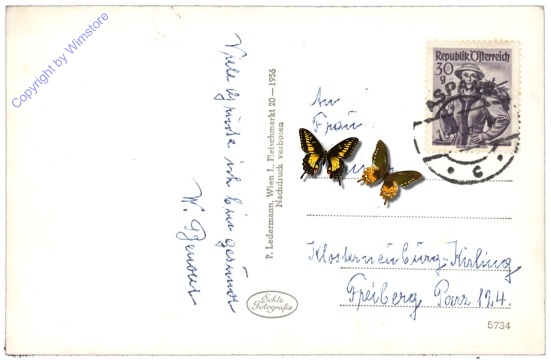 Copyright by Wimstore
Viele Grüsse ich bin gesund
W.
P. Ledermann, Wien I., Fleischmarkt 20 — 1956
Nachdruck verboten
Echte
Fotografie
Republik Österreich
30
g
ASPANG
C
An
Frau
Klosterneuburg-Kirling
Freiberg Parz 124.
5734